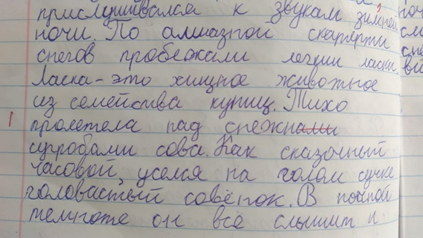 прислушивался к звукам зимней
ночи. По алмазной скатерти
снегов пробежали легкии ласки.
Ласка - это хищное животное
из семейства куниц. Тихо
пролетела над снежнами
сугробами сова. Как сказочный
часовой, уселся на голом сучке
головастый совёнок. В ночной
темноте он всё слышит и